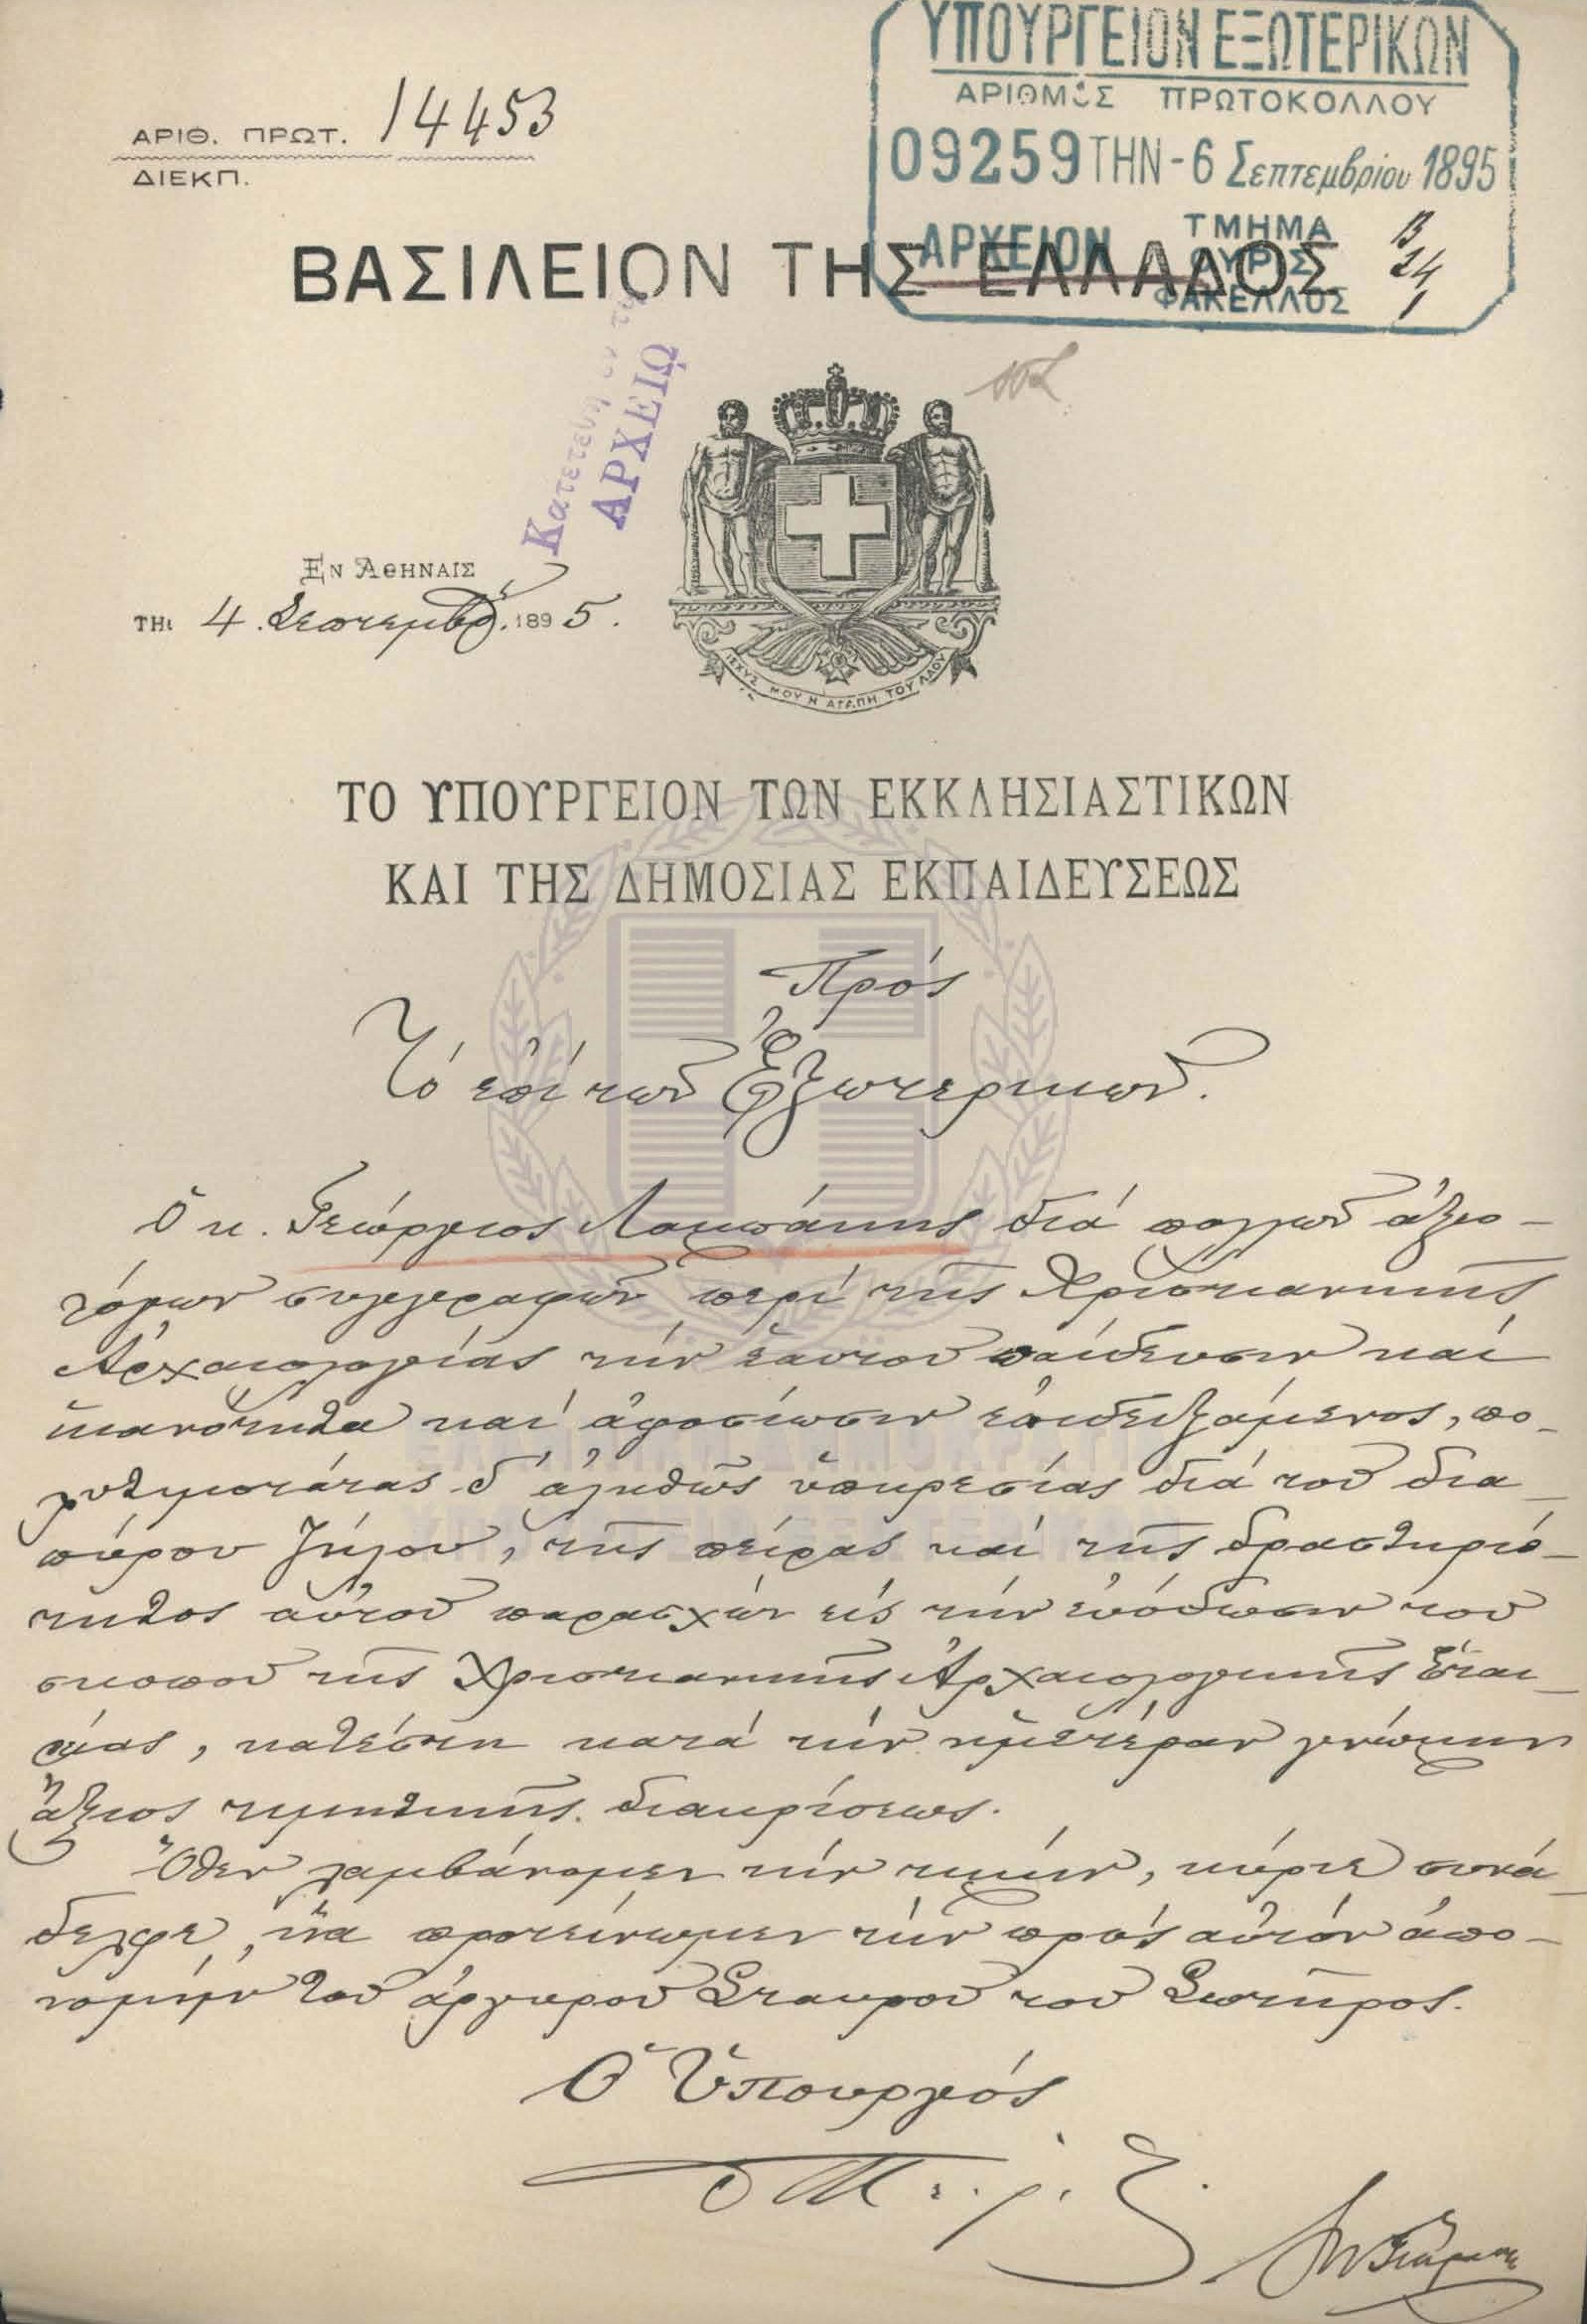 ΥΠΟΥΡΓΕΙΟΝ ΕΞΩΤΕΡΙΚΩΝ
ΑΡΙΘΜΟΣ ΠΡΩΤΟΚΟΛΛΟΥ
09259 ΤΗΝ - 6 Σεπτεμβρίου 1895
ΑΡΧΕΙΟΝ
ΤΜΗΜΑ Β
ΘΥΡΙΣ 24
ΦΑΚΕΛΛΟΣ 1
ΑΡΙΘ. ΠΡΩΤ. 14453
ΔΙΕΚΠ.
ΒΑΣΙΛΕΙΟΝ ΤΗΣ ΕΛΛΑΔΟΣ
Κατετέθη ἐν τῷ
ΑΡΧΕΙΩ
ΕΝ ΑΘΗΝΑΙΣ
ΤΗι 4. Σεπτεμβρ. 1895.
ΙΣΧΥΣ ΜΟΥ Η ΑΓΑΠΗ ΤΟΥ ΛΑΟΥ
ΤΟ ΥΠΟΥΡΓΕΙΟΝ ΤΩΝ ΕΚΚΛΗΣΙΑΣΤΙΚΩΝ
ΚΑΙ ΤΗΣ ΔΗΜΟΣΙΑΣ ΕΚΠΑΙΔΕΥΣΕΩΣ
Πρός
Τό ἐπί τῶν Ἐξωτερικῶν.
Ὁ κ. Γεώργιος Λαμπάκης διά πολλῶν ἀξιο-
λόγων συγγραφῶν περί τῆς Χριστιανικῆς
Ἀρχαιολογίας τήν ἑαυτοῦ παίδευσιν καί
ἱκανότητα καί ἀφοσίωσιν ἐπιδειξάμενος, πο-
λυτιμοτάτας δ' ἀληθῶς ὑπηρεσίας διά τοῦ δια-
πύρου ζήλου, τῆς πείρας καί τῆς δραστηριό-
τητος αὐτοῦ παρασχών εἰς τήν εὐόδωσιν τοῦ
σκοποῦ τῆς Χριστιανικῆς Ἀρχαιολογικῆς Ἑται-
ρίας, κατέστη κατά τήν ἡμετέραν γνώμην
ἄξιος τιμητικῆς διακρίσεως.
Ὅθεν λαμβάνομεν τήν τιμήν, κύριε συνά-
δελφε, ἵνα προτείνωμεν τήν πρός αὐτόν ἀπο-
νομήν τοῦ ἀργυροῦ Σταυροῦ τοῦ Σωτῆρος.
Ὁ Ὑπουργός